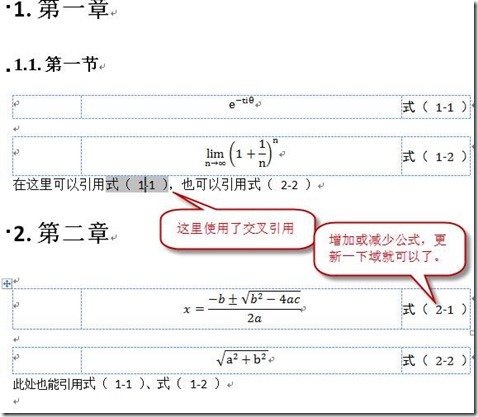 1. 第一章
1.1. 第一节
e^{-tiθ} 式（ 1-1 ）
lim_{n→∞} (1 + 1/n)^n 式（ 1-2 ）
在这里可以引用式（ 1-1 ），也可以引用式（ 2-2 ）
这里使用了交叉引用
2. 第二章
增加或减少公式，更
新一下域就可以了。
x = (-b ± √(b² - 4ac)) / 2a 式（ 2-1 ）
√(a² + b²) 式（ 2-2 ）
此处也能引用式（ 1-1 ）、式（ 1-2 ）